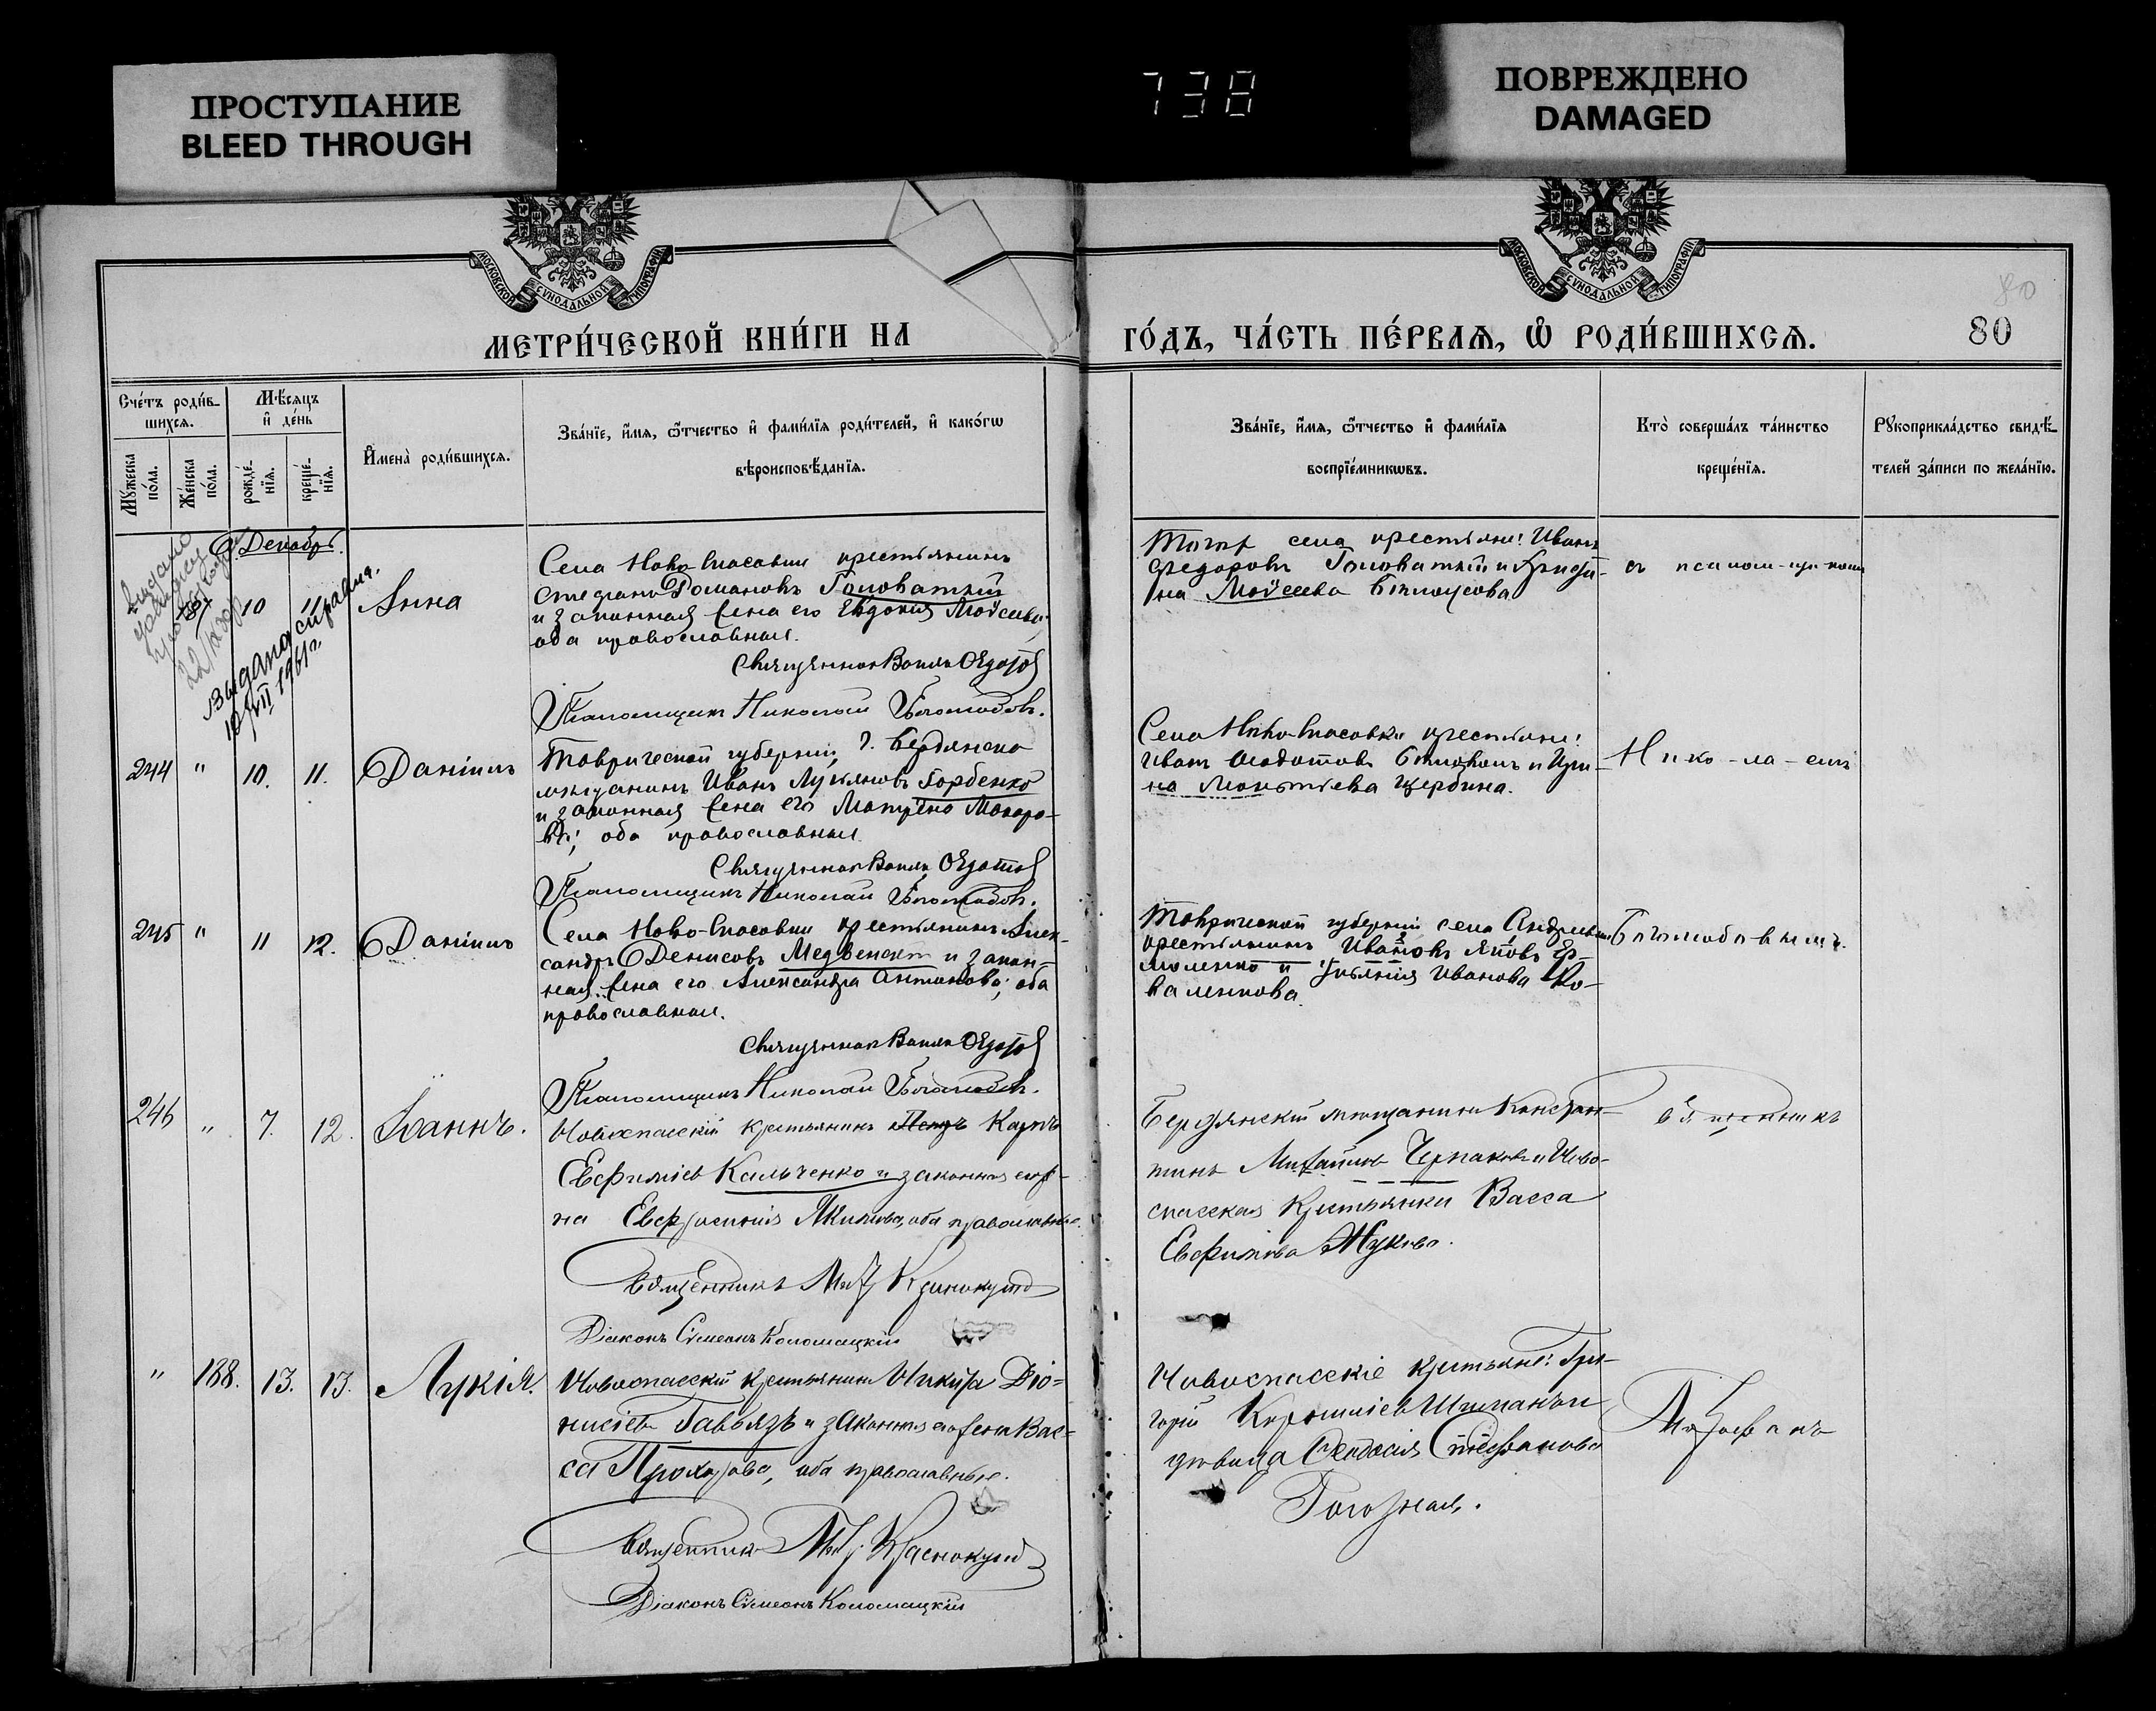 ПРОСТУПАНИЕ
BLEED THROUGH
738
ПОВРЕЖДЕНО
DAMAGED
МОСКОВСКОЙ СѴНОДАЛЬНОЙ ТИПОГРАФІИ
МОСКОВСКОЙ СѴНОДАЛЬНОЙ ТИПОГРАФІИ
МЕТРИ́ЧЕСКОЙ КНИ́ГИ НА
ГО́ДЪ, ЧА́СТЬ ПЕ́РВАѦ, Ѽ РОДИ́ВШИХСѦ.
80
80
Сче́тъ роди́в-
шихсѧ.
Му́жеска
по́ла.
Же́нска
по́ла.
Мѣ́сѧцъ
и҆ де́нь
рожде́-
нїѧ.
креще́-
нїѧ.
И҆мена̀ роди́вшихсѧ.
Зва́нїе, и҆́мѧ, ѻ҆́тчество и҆ фами́лїѧ роди́телей, и҆ како́гѡ
вѣроисповѣ́данїѧ.
Зва́нїе, и҆́мѧ, ѻ҆́тчество и҆ фами́лїѧ
воспрїе́мникѡвъ.
Кто̀ соверша́лъ та́инство
креще́нїѧ.
Рꙋкоприкла́дство свидѣ́-
телей за́писи по жела́нїю.
Декабрь.
Выдана справка.
10/VII 1961 г.
10 11 Анна
Села Ново-Спасовки крестьянинъ
Стефанъ Романовъ Головатый
и законная жена его Евдокия Моѵсеева;
оба православные.
Священникъ Василій Ѳедотов
Псаломщикъ Николай Боголюбовъ.
Того же села крестьяне: Иванъ
Федоровъ Головатый и Ирина
Моѵсеева Белоусова
съ псаломщикомъ
244 " 10. 11. Даніилъ
Таврической губерніи, г. Бердянска
мещанинъ Иванъ Лукьяновъ Горбенко
и законная жена его Матрёна Макаро-
ва; оба православные.
Священникъ Василій Ѳедотов
Псаломщикъ Николай Боголюбовъ.
Села Ново-Спасовки крестьяне:
Иванъ Ири-
на Щербина.
Нико-ла-емъ
245 " 11 12. Даніилъ
Села Ново-Спасовки крестьянинъ Алек-
сандръ Денисовъ Медвенскій и закон-
ная жена его Александра Антонова; оба
православные.
Священникъ Василій Ѳедотов
Псаломщикъ Николай Боголюбовъ.
Таврической губерніи села Андреевки
крестьянинъ Ивановъ Яковъ Ер-
моленко и Ульянія Иванова Ко-
валенкова.
Боголюбовымъ.
246 " 7. 12. Іоаннъ.
Новоспасскій крестьянинъ Карпъ
Евфиміевъ Кальченко и законная его же-
на Евфросинія Акимова, оба православные.
Священникъ Митр. Краснокутскій
Діаконъ Сѵмеонъ Коломацкій
Бердянскій мещанинъ Констан-
тинъ Михайловъ Чернаковъ и Ново-
спасская крестьянка Васса
Евфимова Жукова.
Священникъ
" 188. 13. 13. Лукія.
Новоспасскій крестьянинъ Никита Діо-
нисіевъ Гавьязъ и законная его жена Вас-
са Прохорова, оба православные.
Священникъ Митр. Краснокутскій
Діаконъ Сѵмеонъ Коломацкій
Новоспасскіе крестьяне: Гри-
горій Корниліевъ Шиманъ и
девица Ѳеодосія Стефанова
Погорелая.
Митрофанъ